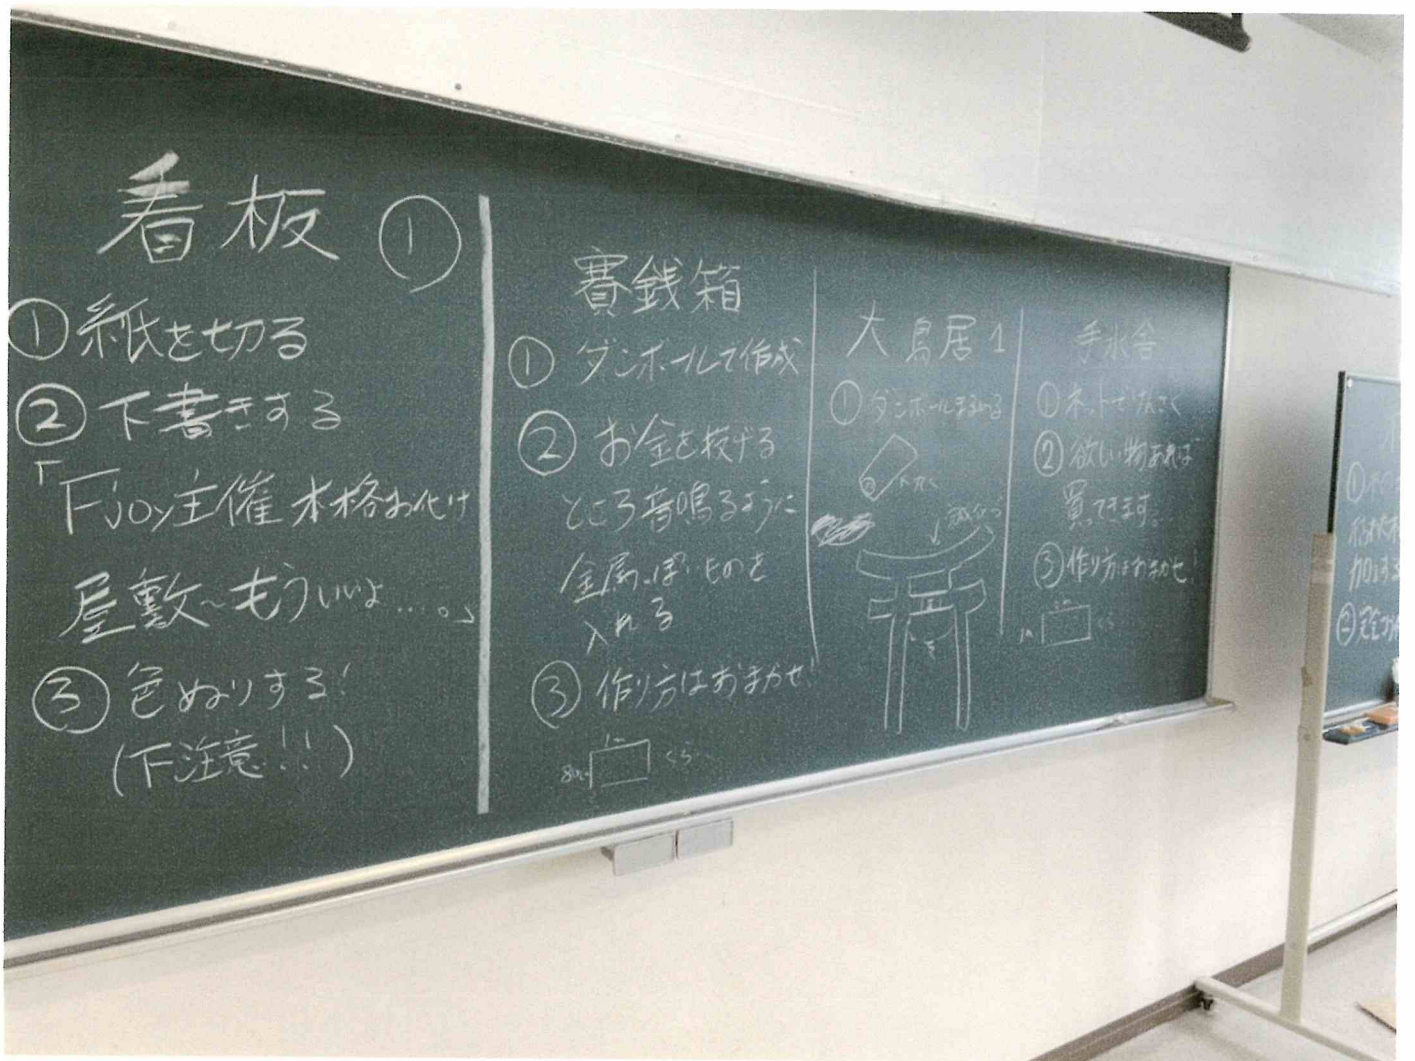 看板 ①
①紙を切る
②下書きする
「Fjoy主催 本格お化け
屋敷〜もういいよ….。」
③色ぬりする!
(下注意!!)
賽銭箱
① ダンボールで作成
② お金を投げる
ところ音鳴るように
金属っぽいものを
入れる
③ 作り方はおまかせ!
1m
80cm
くらい
大鳥居1
①ダンボールまるめる
手水舎
①ネットでけんさく
②欲しい物あれば
買ってきます。
③作り方はおまかせ!
1m
くらい
①
加工する
②